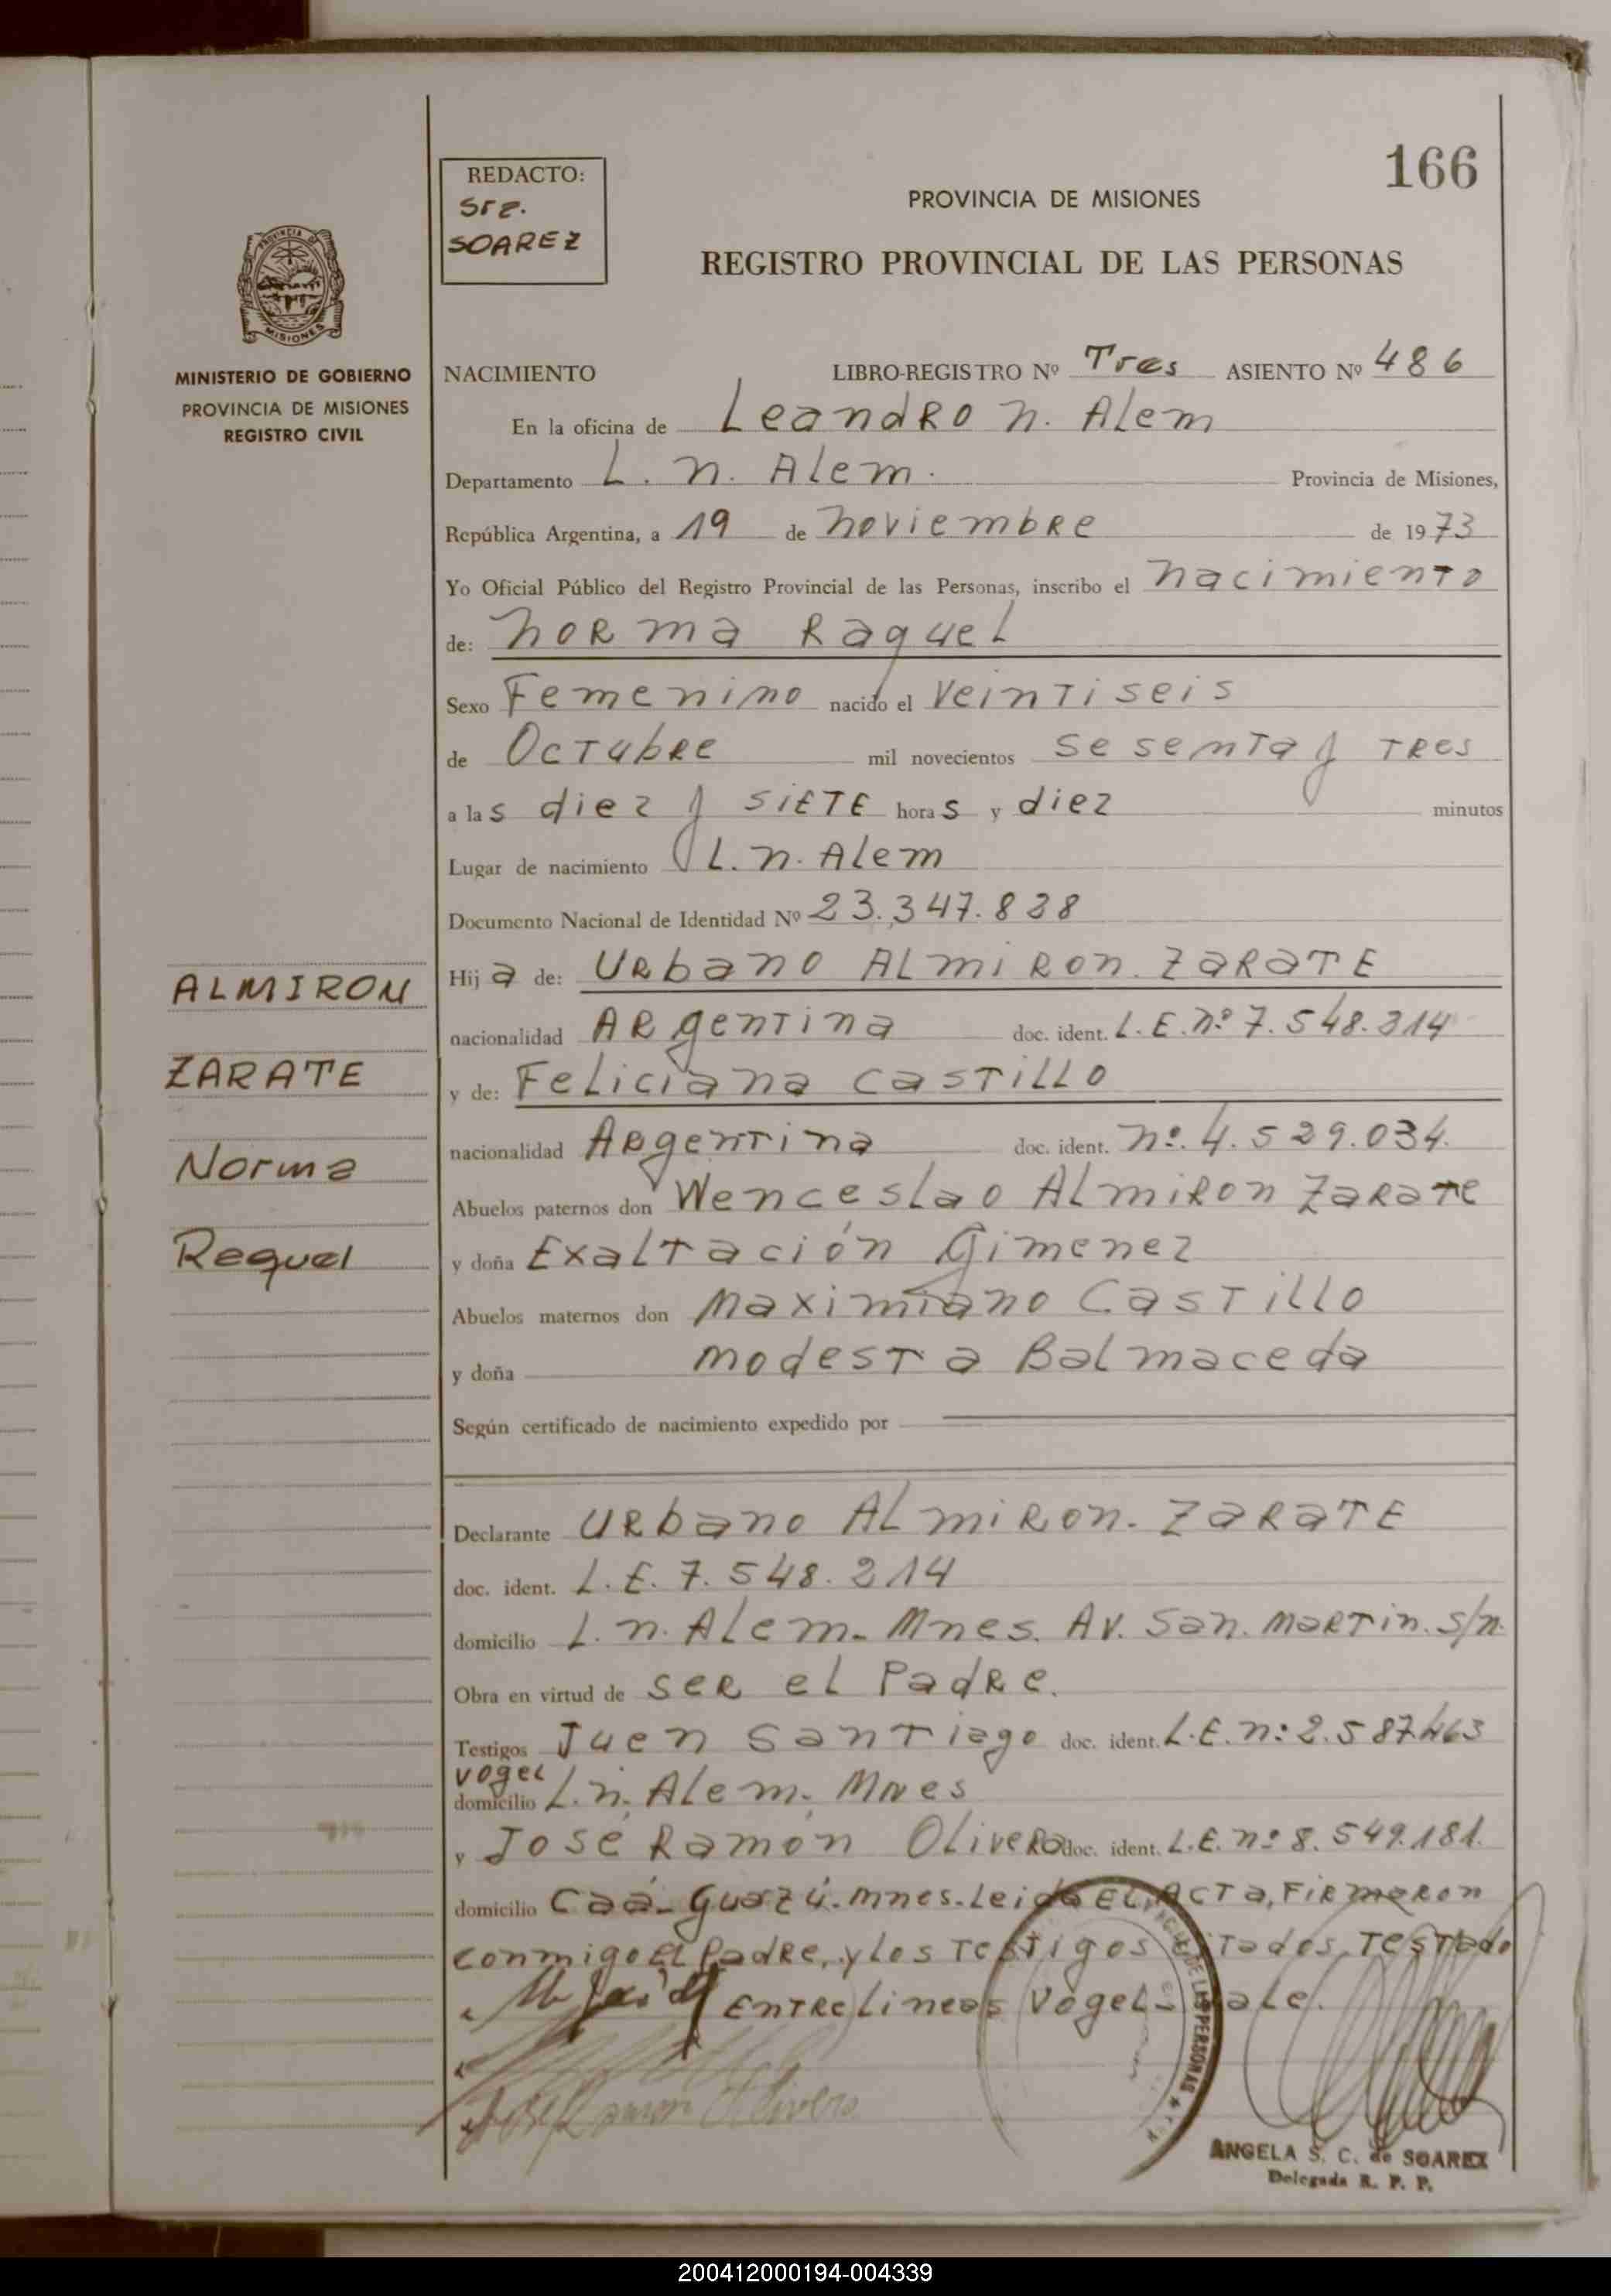 166
REDACTO:
Sra.
SOAREZ
PROVINCIA DE MISIONES
REGISTRO PROVINCIAL DE LAS PERSONAS
PROVINCIA DE
MISIONES
MINISTERIO DE GOBIERNO
PROVINCIA DE MISIONES
REGISTRO CIVIL
NACIMIENTO LIBRO-REGISTRO Nº Tres ASIENTO Nº 486
En la oficina de Leandro N. Alem
Departamento L. N. Alem. Provincia de Misiones,
República Argentina, a 19 de Noviembre de 1973
Yo Oficial Público del Registro Provincial de las Personas, inscribo el nacimiento
de: Norma Raquel
Sexo Femenino nacido el veintiseis
de Octubre mil novecientos sesenta y tres
a las diez y siete horas y diez minutos
Lugar de nacimiento L. N. Alem
Documento Nacional de Identidad Nº 23.347.828
Hija de: Urbano ALMIRON. ZARATE
nacionalidad Argentina doc. ident. L.E.Nº 7.548.214
y de: Feliciana CASTILLO
nacionalidad Argentina doc. ident. Nº. 4.529.034.
Abuelos paternos don Wenceslao Almiron Zarate
y doña Exaltación Gimenez
Abuelos maternos don Maximiano Castillo
y doña Modesta Balmaceda
Según certificado de nacimiento expedido por
ALMIRON
ZARATE
Norma
Raquel
Declarante Urbano ALMIRON. ZARATE
doc. ident. L.E. 7.548.214
domicilio L. N. Alem. Mnes. Av. San. Martin. s/n.
Obra en virtud de ser el Padre.
Testigos Juan Santiago doc. ident. L.E. n: 2.587.463
Vogel
domicilio L. N. Alem. Mnes
y José Ramón Olivero doc. ident. L.E. nº 8.549.181.
domicilio Caá-Guazú. Mnes. Leida el Acta, Firmaron
conmigo el Padre, y los Testigos citados, Testado
Entrelineas Vogel - Vale.
Ramon Olivero
DE LAS PERSONAS
ANGELA S. C. de SOAREZ
Delegada R. P. P.
200412000194-004339